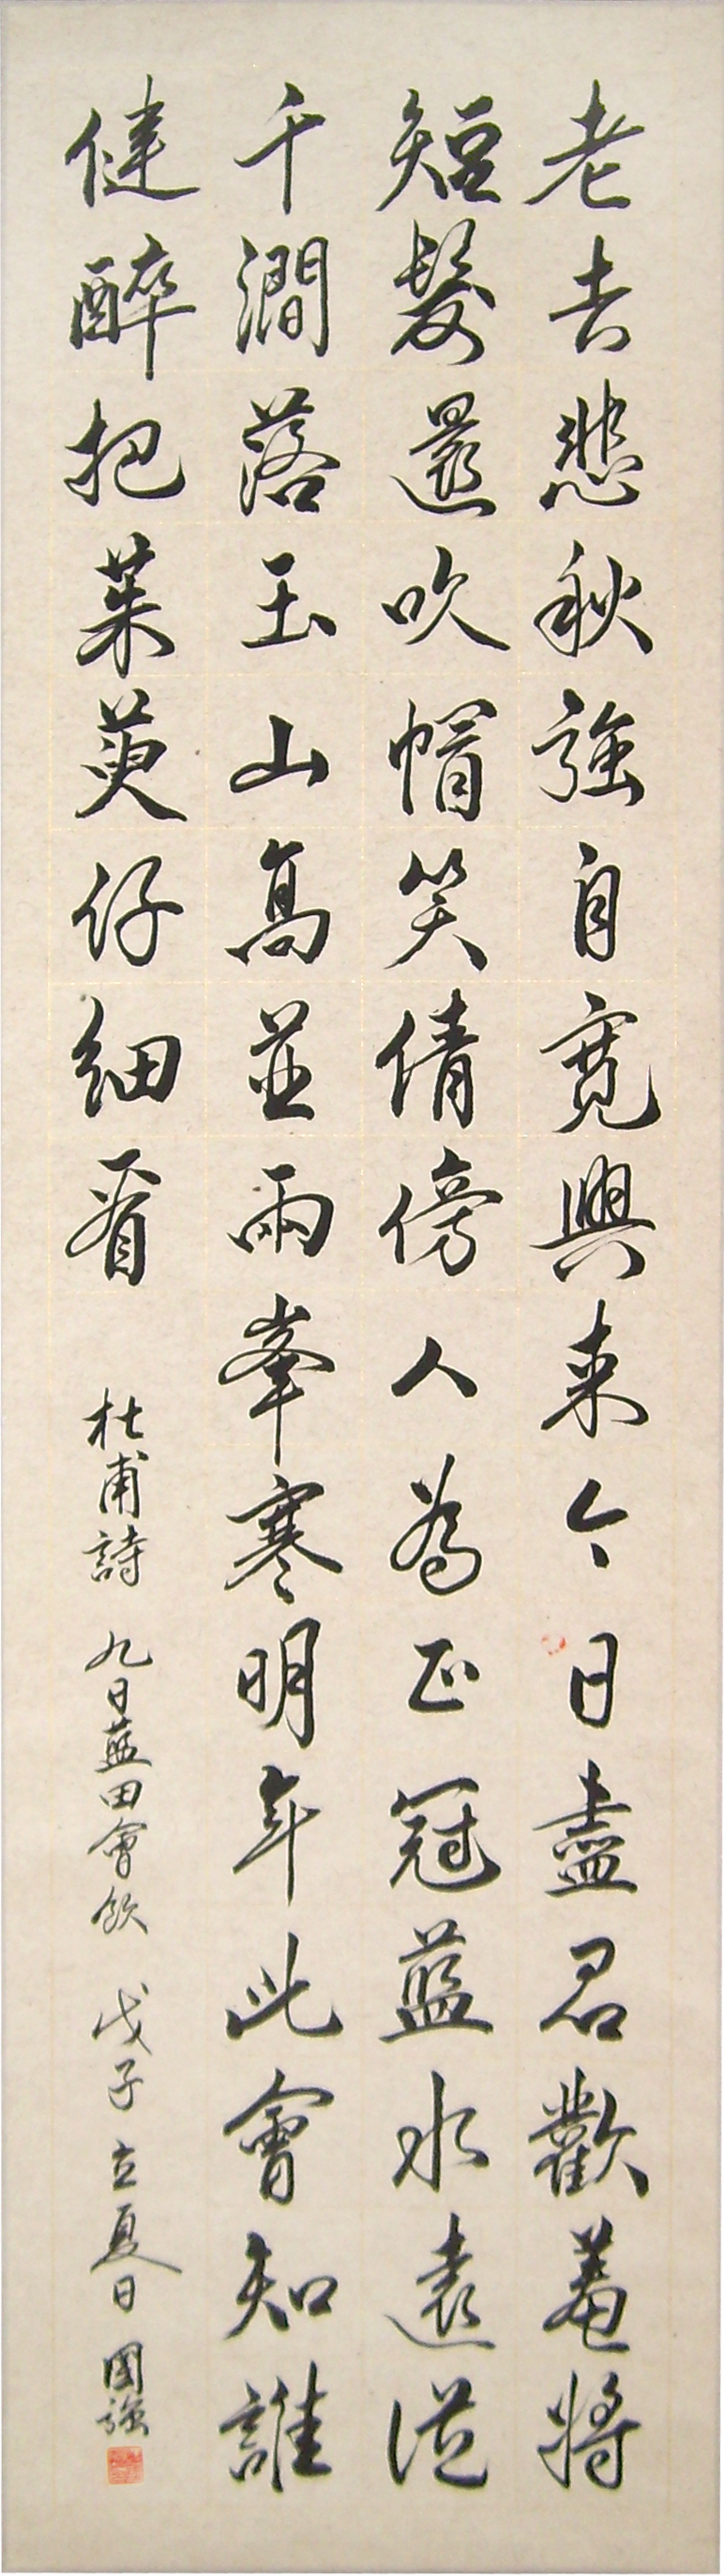 老去悲秋強自寬興来今日盡君歡羞將
短髮還吹帽笑倩傍人為正冠藍水遠從
千澗落玉山高並兩峯寒明年此會知誰
健醉把茱萸仔細看
杜甫詩 九日藍田會飲 戊子立夏日 國強